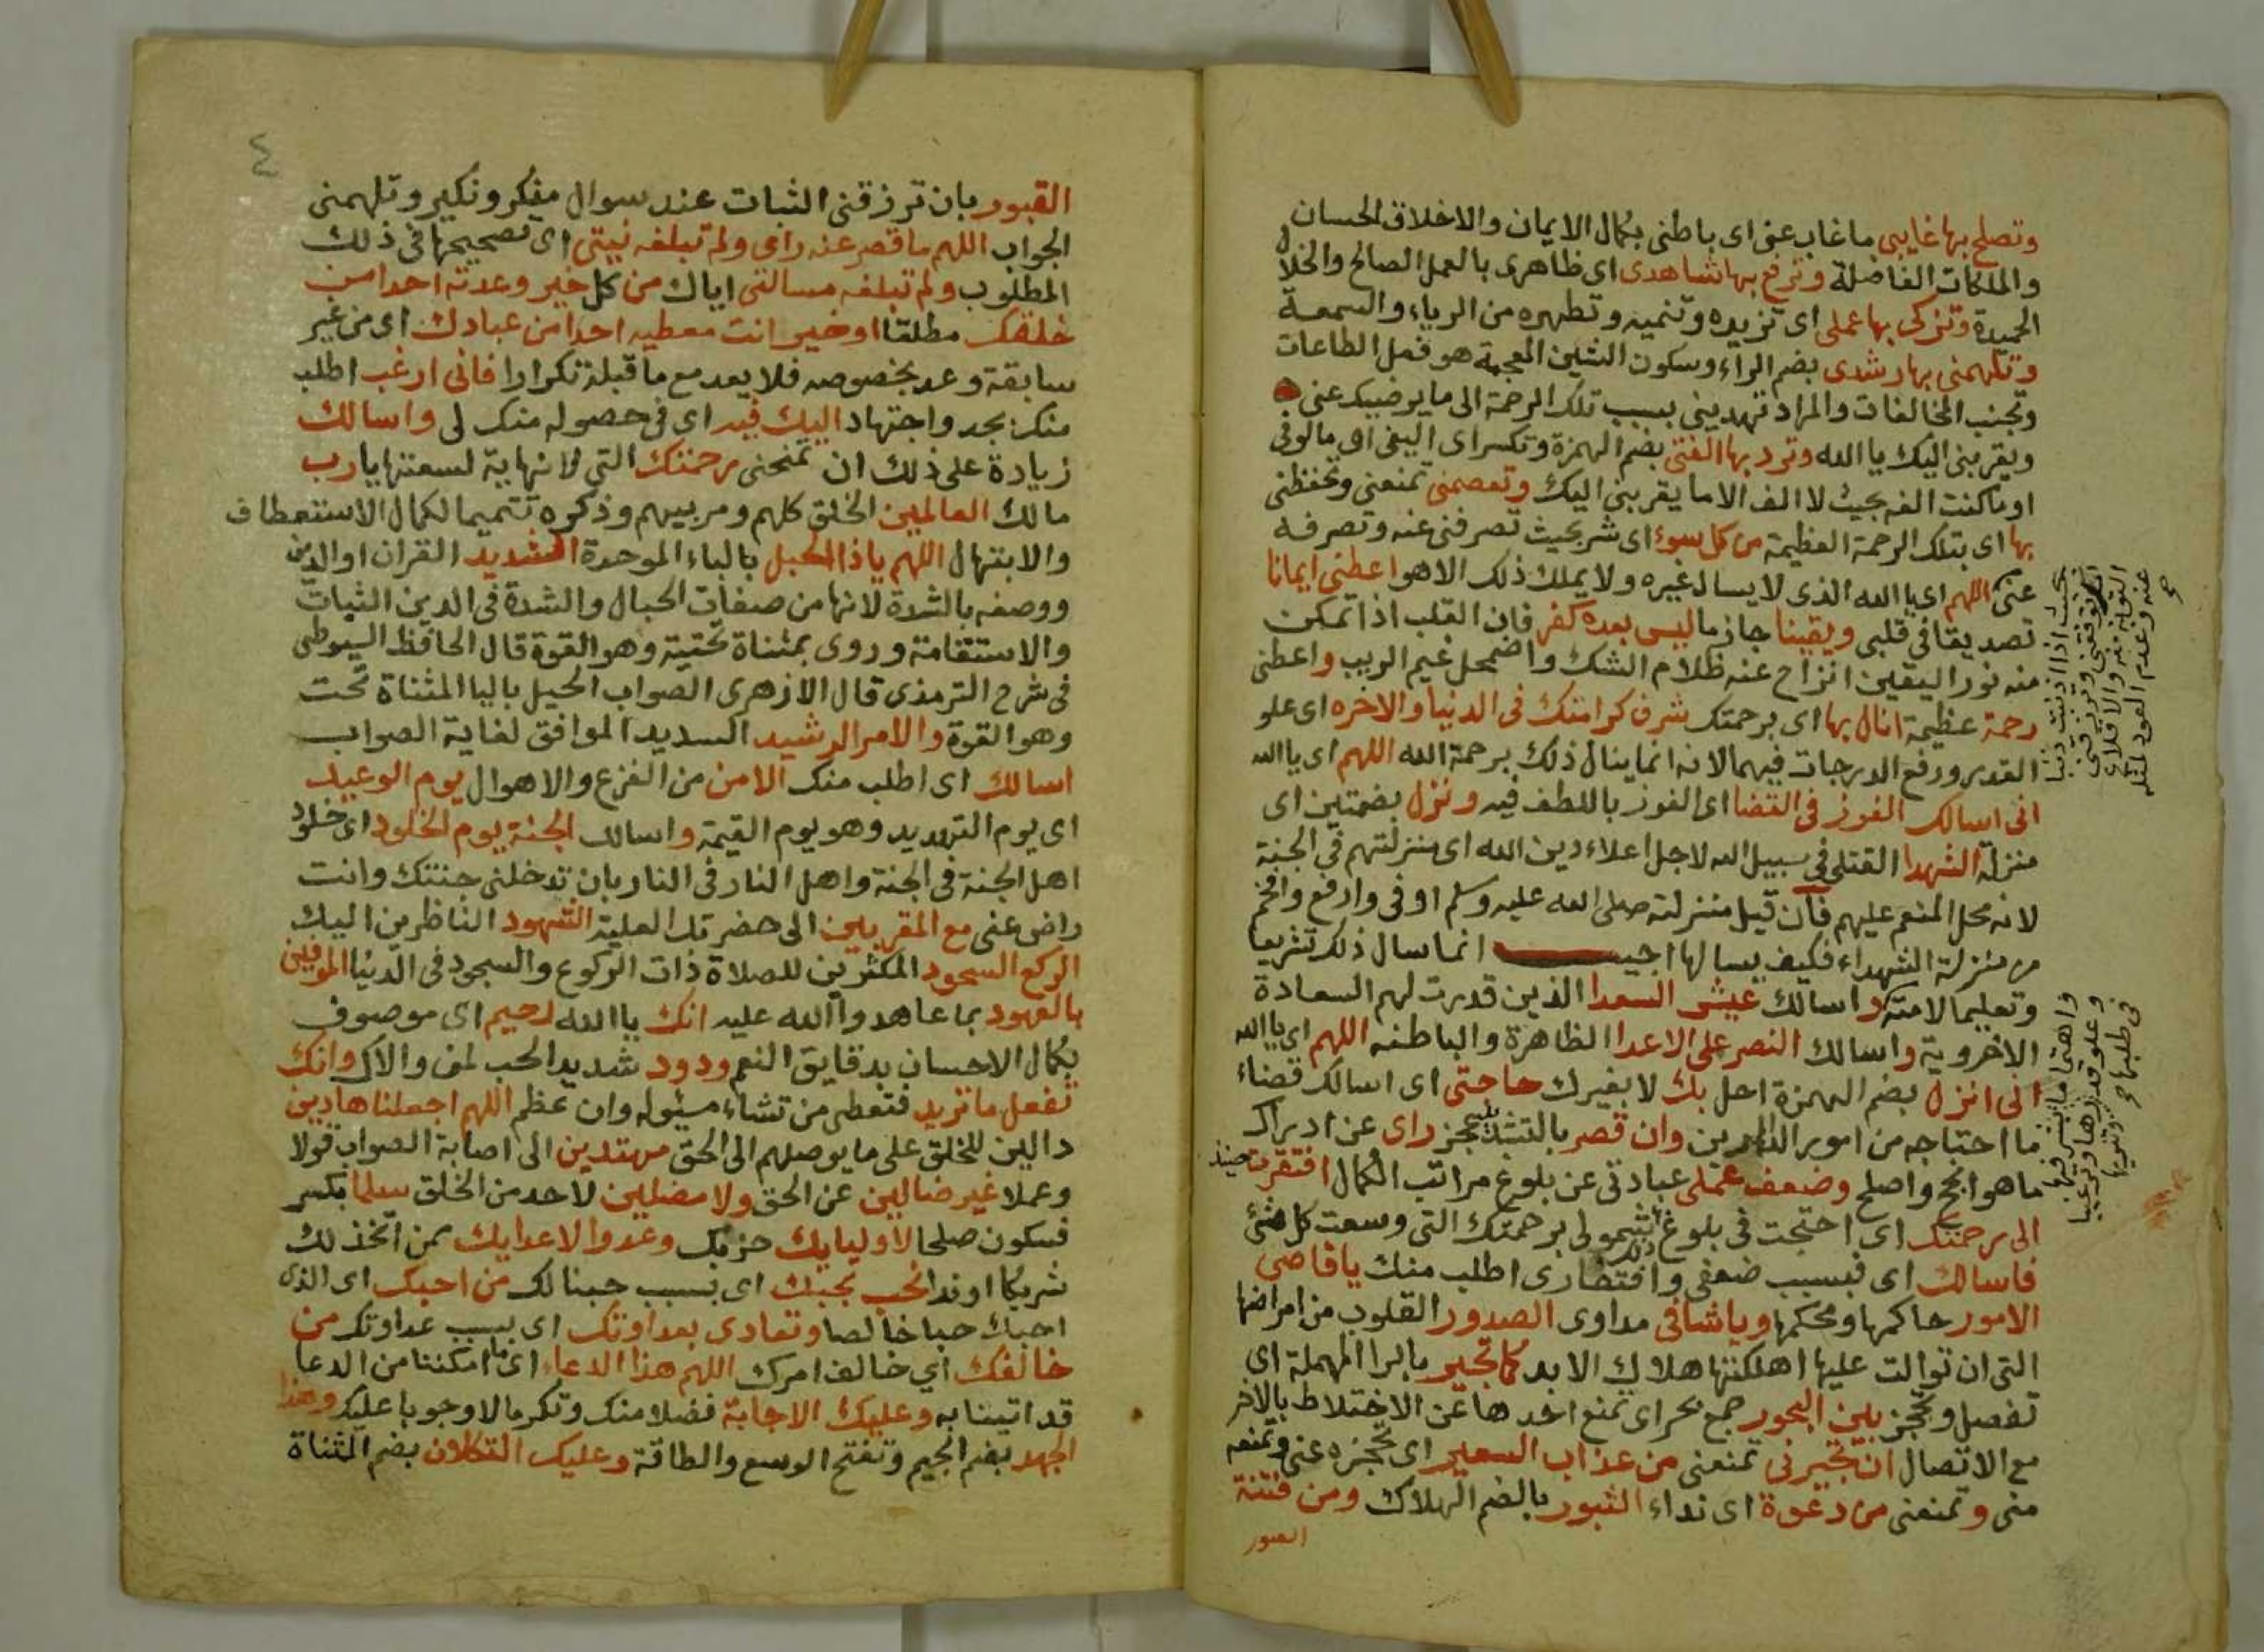 وتصلح بها غايبي ما غاب عني اى باطني بكمال الايمان والاخلاق الحسان
والملكات الفاضلة وترفع بها شاهدى اى ظاهرى بالعمل الصالح والخلال
الحميدة وتزكى بها عملى اى تزيده وتنميه وتطهره من الرياء والسمعة
وتلهمنى بها رشدى بضم الراء وسكون الشين المعجمة هو فعل الطاعات
وتجنب المخالفات والمراد تهدينى بسبب تلك الرحمة الى ما يرضيك عنى
ويقربنى اليك يا الله وترد بها الفتى بضم الهمزة وتكسر اى اليفى اى مالوفى
او ما كنت الفه بحيث لا الف الا ما يقربنى اليك وتعصمنى تمنعنى وتحفظنى
بها اى بتلك الرحمة العظيمة من كل سوء اى شر بحيث تصرفنى عنه وتصرفه
عنى اللهم اى يا الله الذى لا يسال غيره ولا يملك ذلك الا هو اعطنى ايمانا
تصديقا فى قلبى ويقينا جازما ليس بعده كفر فان القلب اذا تمكن
منه نور اليقين انزاح عنه ظلام الشك واضمحل غيم الريب واعطنى
رحمة عظيمة انال بها اى برحمتك شرف كرامتك فى الدنيا والاخره اى علو
القدر ورفع الدرجات فيهما لانه انما ينال ذلك برحمة الله اللهم اى يا الله
انى اسالك الفوز فى القضا اى الفوز باللطف فيه ونزل بضمتين اى
منزلة الشهدا القتلى فى سبيل الله لاجل اعلاء دين الله اى منزلتهم فى الجنة
لانه محل المنعم عليهم فان قيل منزلته صلى الله عليه وسلم اوفى وارفع وافخم
من منزلة الشهداء فكيف يسالها اجيب انما سال ذلك تشريعا
وتعليما لامته واسالك عيش السعدا الذين قدرت لهم السعادة
الاخروية واسالك النصر على الاعدا الظاهرة والباطنه اللهم اى يا الله
انى انزل بضم الهمزة احل بك لا بغيرك حاجتى اى اسالك قضاء
ما احتاجه من امور الدارين وان قصر بالتشديد عجز راى عن ادراك
ما هو انجح واصلح وضعف عملى عبادتى عن بلوغ مراتب الكمال افتقرت حينئذ
الى رحمتك اى احتجت فى بلوغ ذلك شمولى برحمتك التى وسعت كل شئ
فاسالك اى فبسبب ضعفى وافتقارى اطلب منك يا قاضى
الامور حاكمها ومحكمها ويا شافى مداوى الصدور القلوب من امراضها
التى ان توالت عليها اهلكتها هلاك الابد كما تجير بالرا المهملة اى
تفصل وتحجز بين البحور جمع بحر اى تمنع احدها عن الاختلاط بالاخر
مع الاتصال ان تجيرنى تمنعنى من عذاب السعير اى تحجزه عنى وتمنعه
منى وتمنعنى من دعوة اى نداء الثبور بالضم الهلاك ومن فتنة
القبور
بحيث اذا اذنبت ذنبا
توفقنى وترزقنى
التوبة منه والاقلاع
عنه وعدم العود لمثله
واهتماما بشرفها
وعلو قدرها وترغيبا
فى طلبها
٤
القبور بان ترزقنى الثبات عند سوال منكر ونكير وتلهمنى
الجواب اللهم ما قصر عنه راى ولم تبلغه نيتى اى تصحيحها فى ذلك
المطلوب ولم تبلغه مسالتى اياك من كل خير وعدته احدا من
خلقك مطلقا او خير انت معطيه احدا من عبادك اى من غير
سابقة وعد بخصوصه فلا يعد مع ما قبلة تكرارا فانى ارغب اطلب
منك بجد واجتهاد اليك فيه اى فى حصوله منك لى واسالك
زيادة على ذلك ان تمنحنى رحمتك التى لا نهاية لسعتها يا رب
مالك العالمين الخلق كلهم ومربيهم وذكره تتميما لكمال الاستعطاف
والابتهال اللهم يا ذا الحبل بالباء الموحدة الشديد القران او الدين
ووصفه بالشدة لانها من صفات الحبال والشدة فى الدين الثبات
والاستقامة وروى بمثناة تحتية وهو القوة قال الحافظ السيوطى
فى شرح الترمذى قال الازهرى الصواب الحيل باليا المثناة تحت
وهو القوة والامر الرشيد السديد الموافق لغاية الصواب
اسالك اى اطلب منك الامن من الفزع والاهوال يوم الوعيد
اى يوم التهديد وهو يوم القيمة واسالك الجنة يوم الخلود اى خلود
اهل الجنة فى الجنة واهل النار فى النار بان تدخلنى جنتك وانت
راض عنى مع المقربين الى حضرتك العلية الشهود الناظرين اليك
الركع السجود المكثرين للصلاة ذات الركوع والسجود فى الدنيا الموفين
بالعهود بما عاهدوا الله عليه انك يا الله رحيم اى موصوف
بكمال الاحسان بدقايق النعم ودود شديد الحب لمن والاك وانك
تفعل ما تريد فتعطى من تشاء مسئوله وان عظم اللهم اجعلنا هادين
دالين للخلق على ما يوصلهم الى الحق مهتدين الى اصابة الصواب قولا
وعملا غير ضالين عن الحق ولا مضلين لاحد من الخلق سلما بكسر
فسكون صلحا لاوليايك حزبك وعدوا لاعدايك ممن اتخذ لك
شريكا او ندا نحب بحبك اى بسبب حبنا لك من احبك اى الذى
احبك حبا خالصا ونعادى بعداوتك اى بسبب عداوتك من
خالفك اي خالف امرك اللهم هذا الدعاء اى ما امكننا من الدعا
قد اتينا به وعليك الاجابة فضلا منك وتكرما لا وجوبا عليك وهذا
الجهد بضم الجيم وتفتح الوسع والطاقة وعليك التكلان بضم المثناة